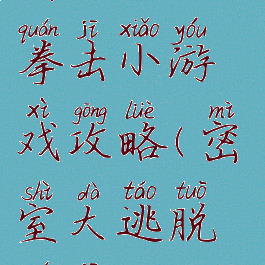 quán jī xiǎo yóu
拳击小游
xì gōng lüè mì
戏攻略(密
shì dà táo tuō
室大逃脱